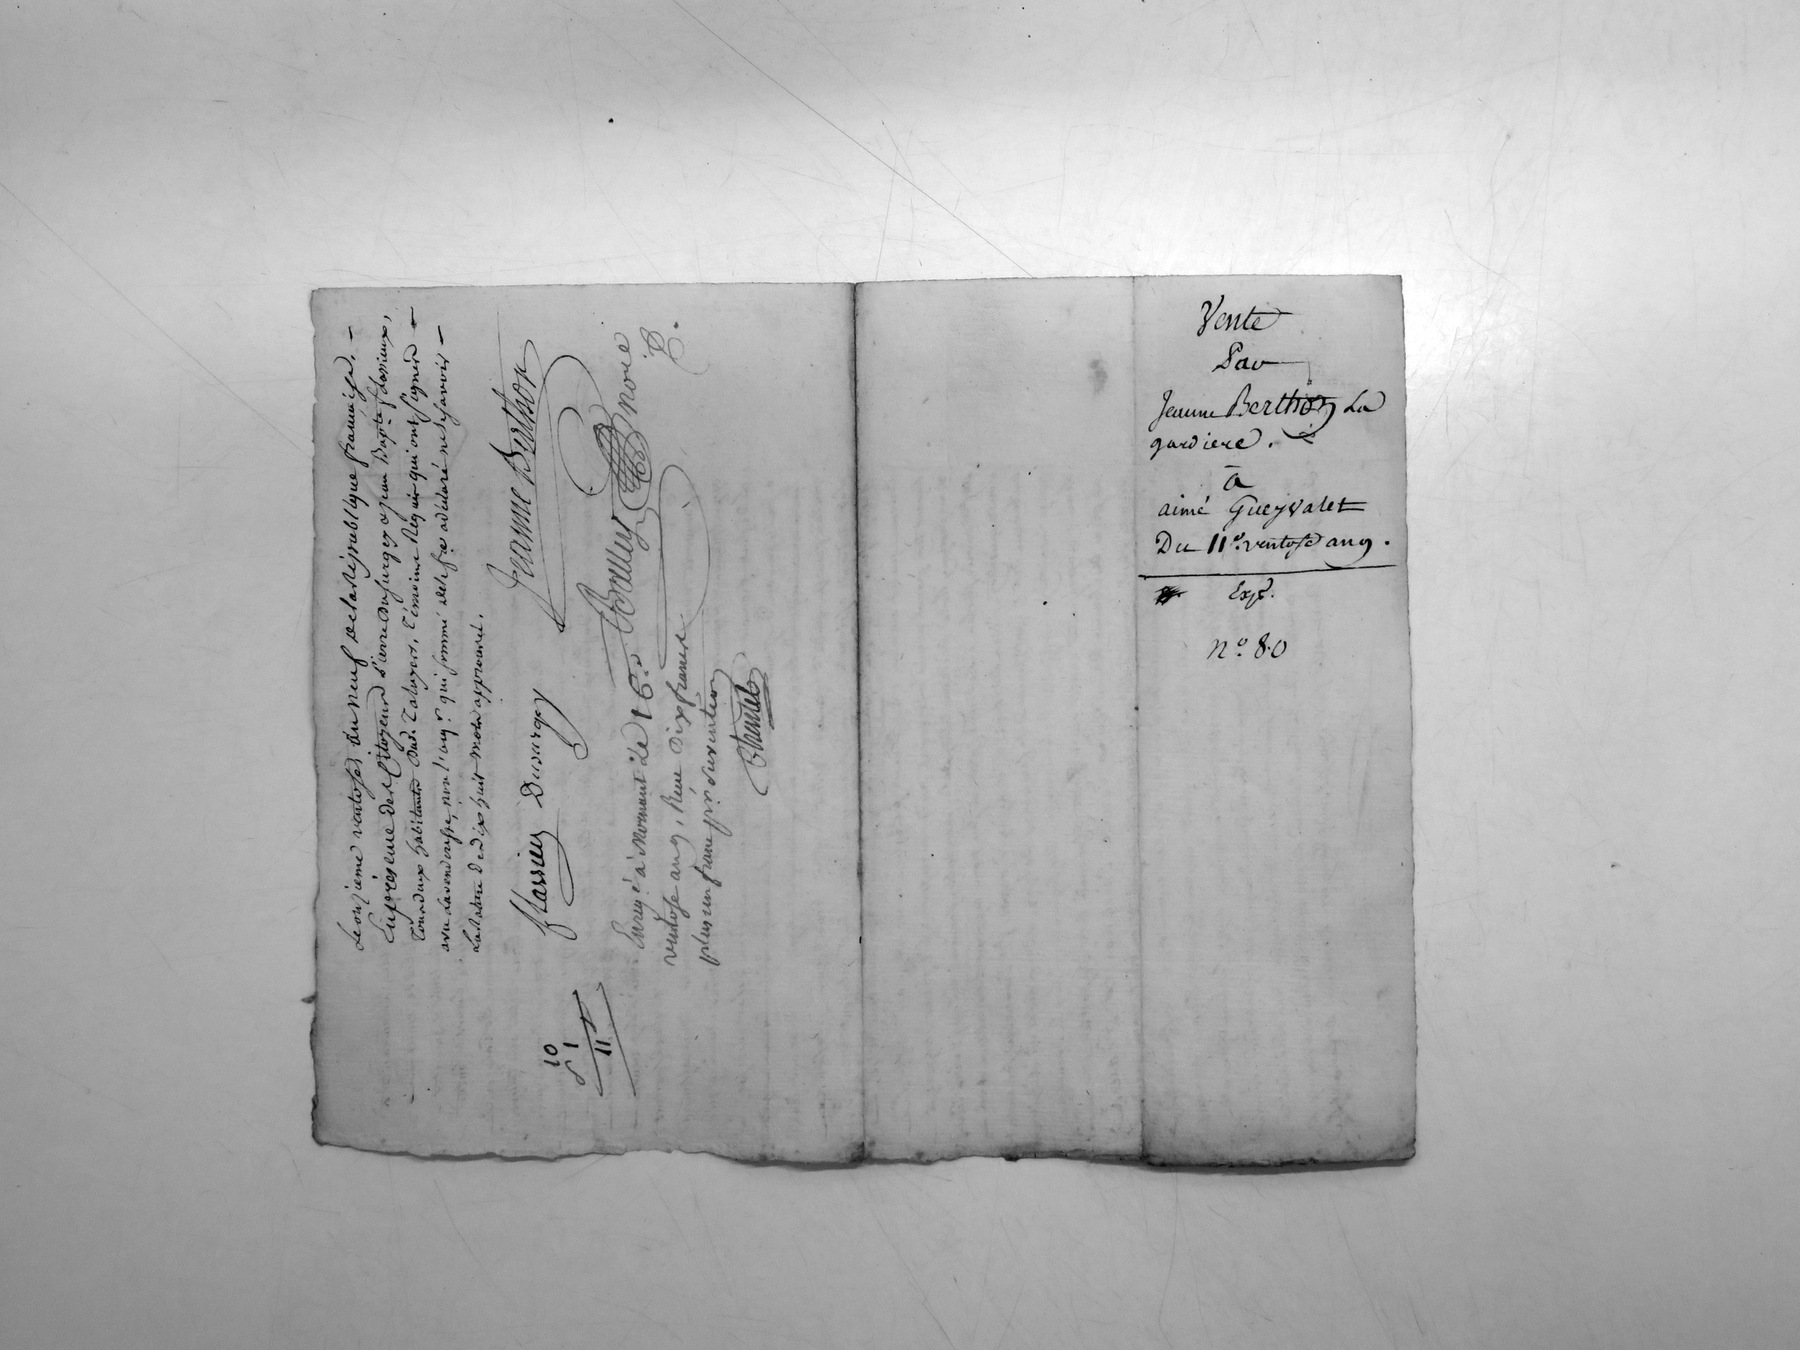 Le onzieme ventose, an neuf de la République française. —
En présence des Citoyens Pierre Dusurgey et jean Bapte. flassieux,
Tous deux habitants dud. Taluyers, témoins Requis qui ont signé —
avec la venderesse, non l'acqr. qui sommé de le fe. a déclaré ne le savoir —
La Rature de dix huit mots approuvée.
Jeanne Berthon
flassieu Dusurgey
nore
10
1
11
Enregé. à Mornant Le 16.
ventose an 9, Reçu dix francs
plus un franc pr. Subvention
Vente
Par
Jeanne Berthon La
gardiere.
à
aimé Gueyvalet
Du 11e. ventose an 9.
Expe.
No. 80